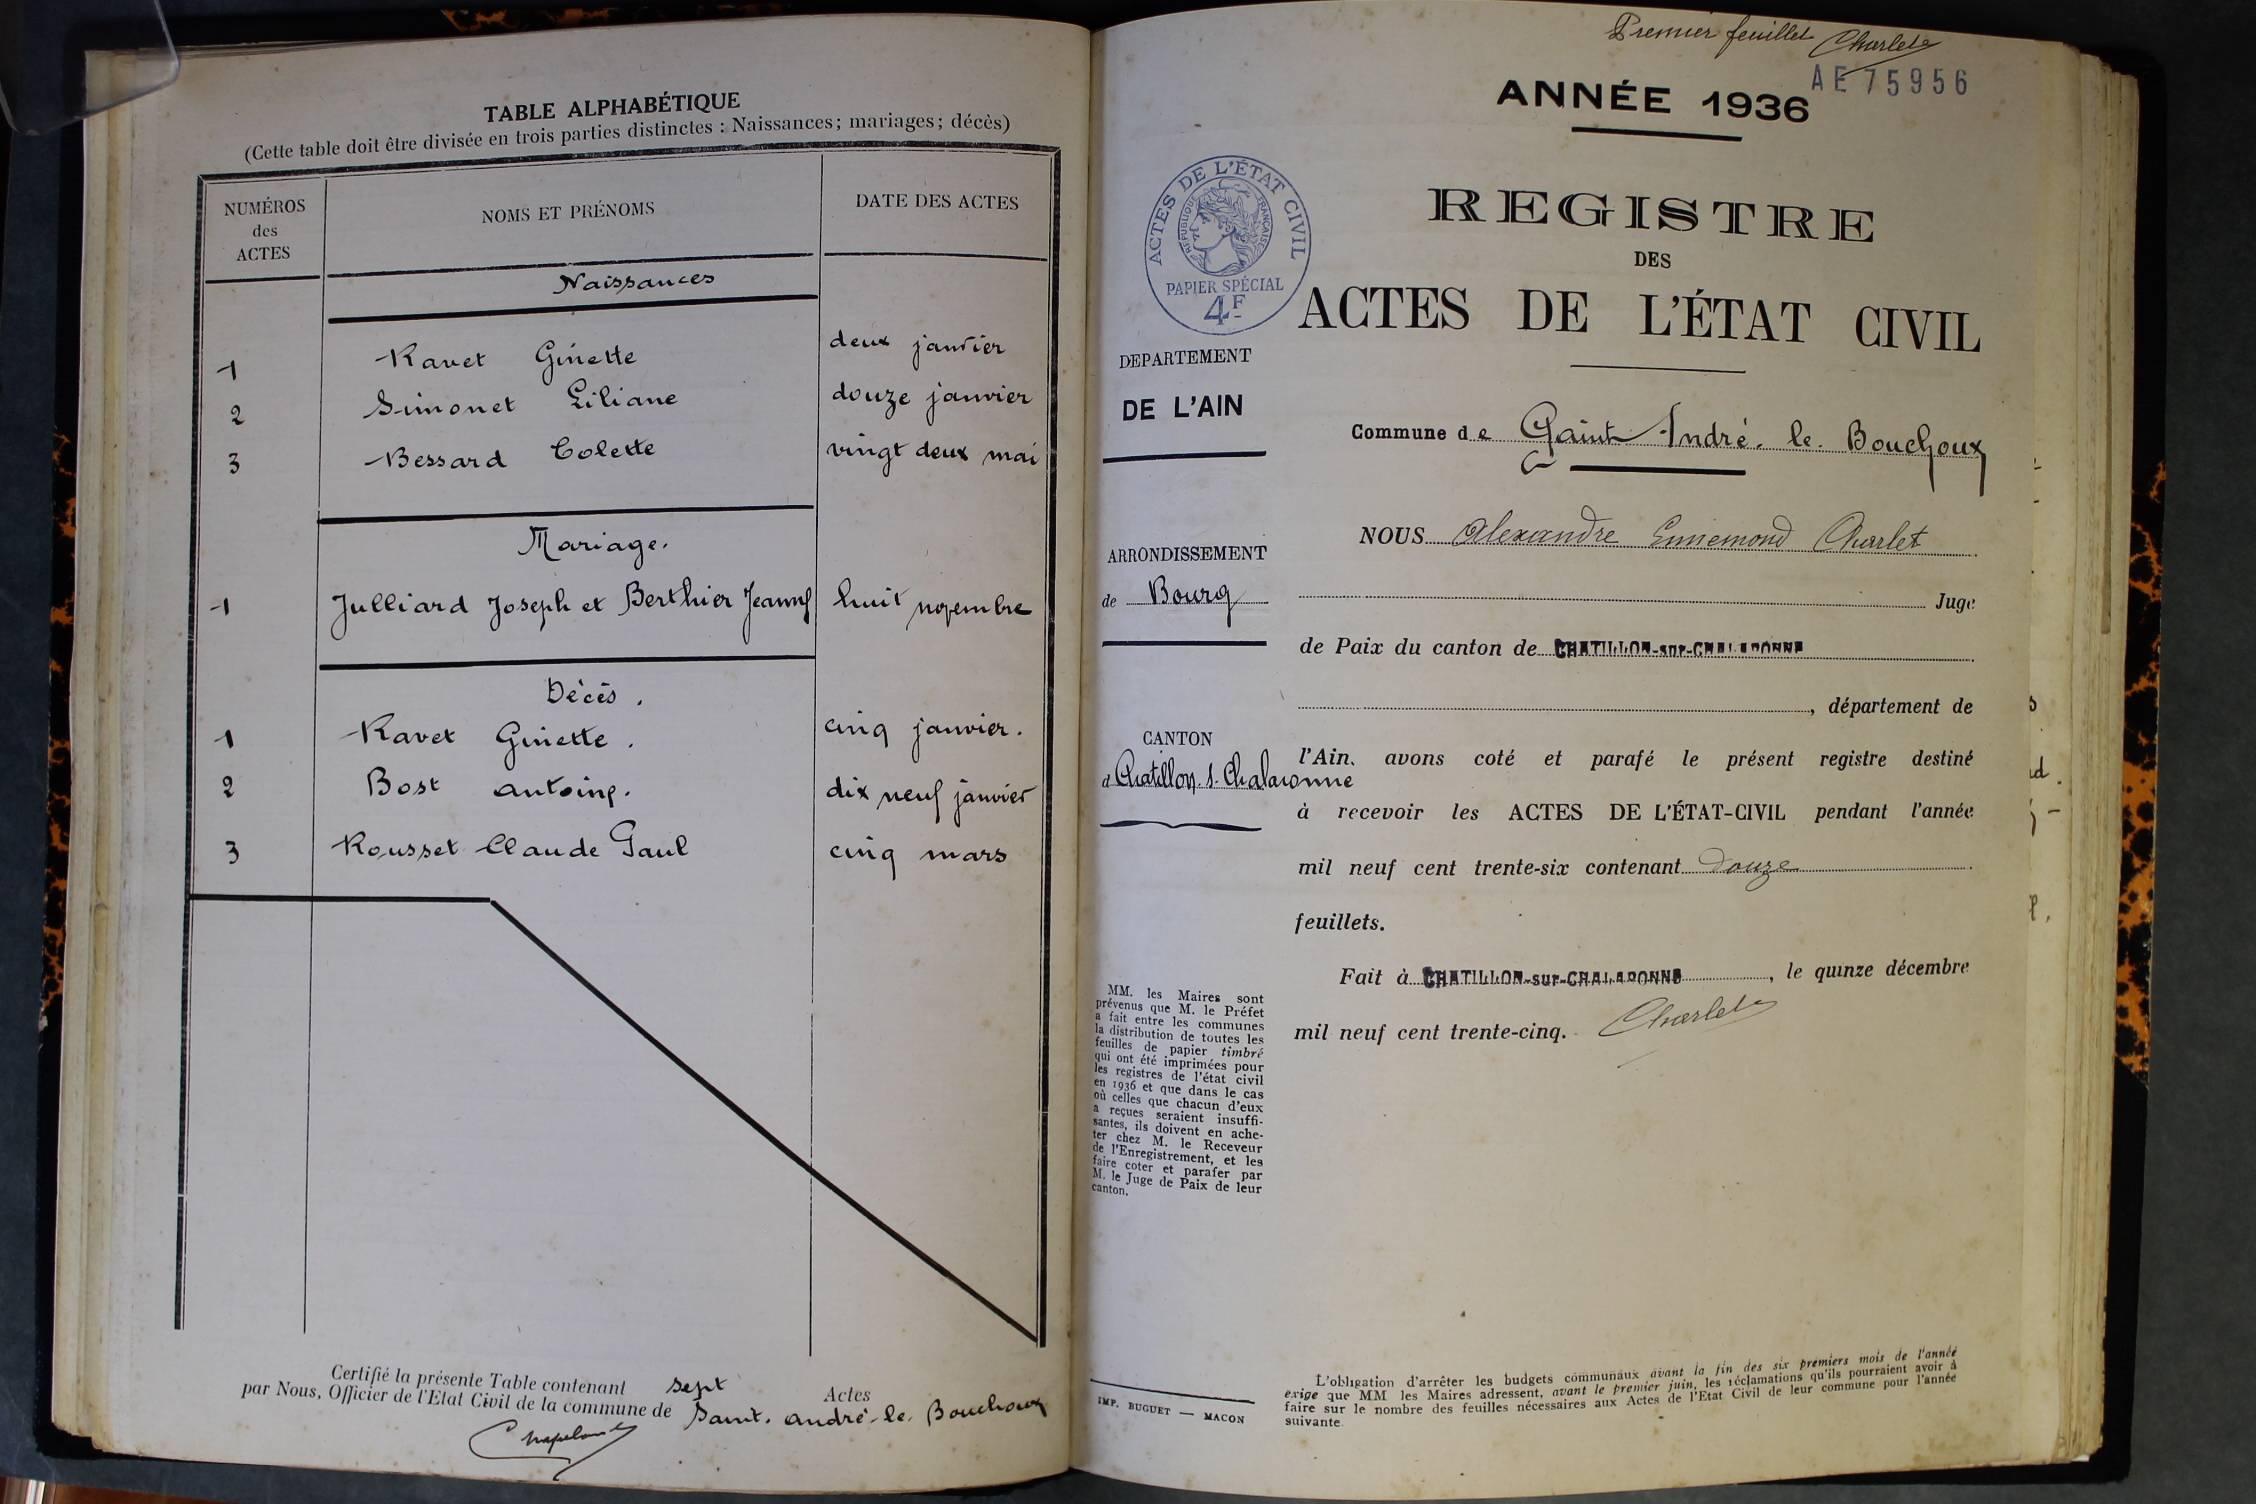 TABLE ALPHABÉTIQUE
(Cette table doit être divisée en trois parties distinctes : Naissances; mariages; décès)
NUMÉROS des ACTES
NOMS ET PRÉNOMS
DATE DES ACTES
Naissances
1 Ravet Ginette deux janvier
2 Simonet Liliane douze janvier
3 Bessard Colette vingt deux mai
Mariage.
1 Julliard Joseph et Berthier Jeanne huit novembre
Décès.
1 Ravet Ginette. cinq janvier.
2 Bost Antoine. dix neuf janvier
3 Rousset Claude Paul cinq mars
Certifié la présente Table contenant sept Actes
par Nous, Officier de l'Etat Civil de la commune de Saint-André-le-Bouchoux
Premier feuillet Charlet
AE 75956
ANNÉE 1936
REGISTRE
DES
ACTES DE L'ÉTAT CIVIL
ACTES DE L'ÉTAT CIVIL
RÉPUBLIQUE FRANÇAISE
PAPIER SPÉCIAL
4F
DEPARTEMENT
DE L'AIN
ARRONDISSEMENT
de Bourg
CANTON
d Chatillon-s-Chalaronne
MM. les Maires sont
prévenus que M. le Préfet
a fait entre les communes
la distribution de toutes les
feuilles de papier timbré
qui ont été imprimées pour
les registres de l'état civil
en 1936 et que dans le cas
où celles que chacun d'eux
a reçues seraient insuffi-
santes, ils doivent en ache-
ter chez M. le Receveur
de l'Enregistrement, et les
faire coter et parafer par
M. le Juge de Paix de leur
canton.
IMP. BUGUET — MACON
Commune de Saint-André-le-Bouchoux
NOUS Alexandre Ennemond Charlet
Juge
de Paix du canton de CHATILLON-sur-CHALARONNE
, département de
l'Ain, avons coté et parafé le présent registre destiné
à recevoir les ACTES DE L'ÉTAT-CIVIL pendant l'année
mil neuf cent trente-six contenant douze
feuillets.
Fait à CHATILLON-sur-CHALARONNE, le quinze décembre
mil neuf cent trente-cinq. Charlet
L'obligation d'arrêter les budgets communaux avant la fin des six premiers mois de l'année
exige que MM les Maires adressent, avant le premier juin, les réclamations qu'ils pourraient avoir à
faire sur le nombre des feuilles nécessaires aux Actes de l'Etat Civil de leur commune pour l'année
suivante